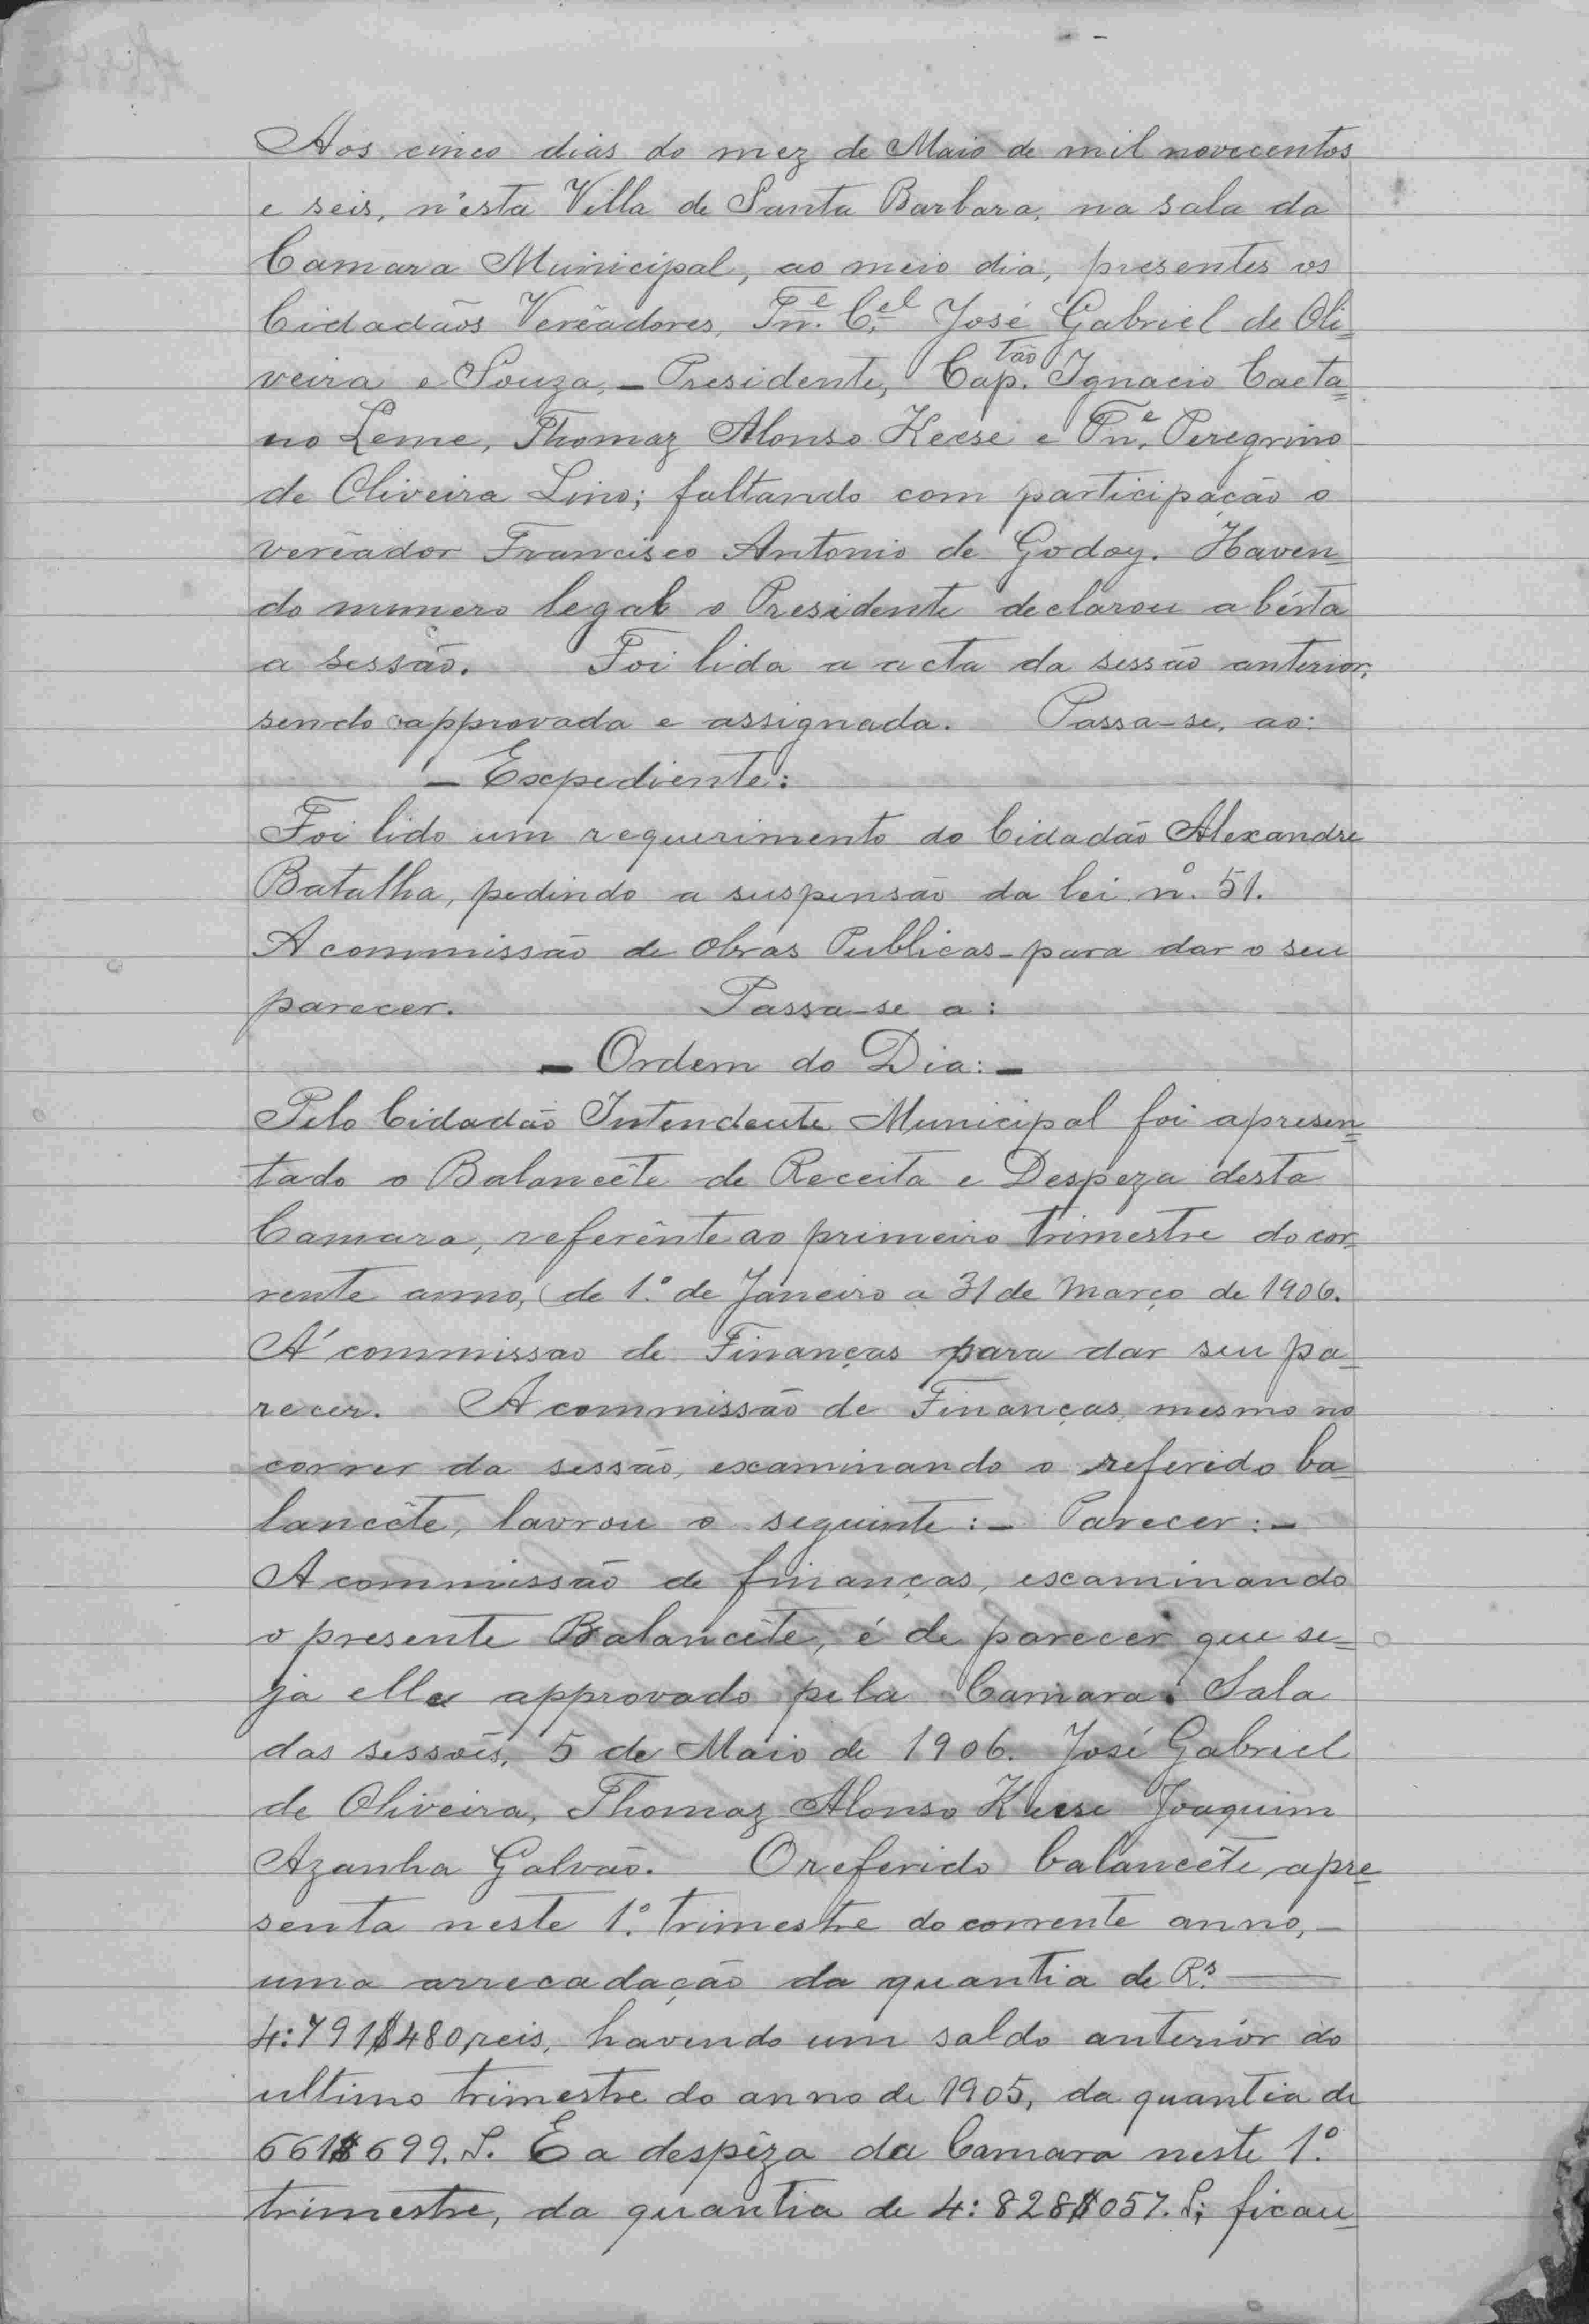 Aos cinco dias do mez de Maio de mil novecentos
e seis, n'esta Villa de Santa Barbara, na sala da
Camara Municipal, ao meio dia, presentes os
Cidadãos Verêadores, Tn.e C.el José Gabriel de Oli=
veira e Souza, - Presidente, Cap.tão Ignacio Caeta=
no Leme, Thomaz Alonso Keese e Tn.e Peregrino
de Oliveira Lino; faltando com participação o
verêador Francisco Antonio de Godoy. Haven=
do numero legal o Presidente declarou abérta
a sessão. Foi lida a acta da sessão anterior,
sendo approvada e assignada. Passa-se, ao:
- Expediente:
Foi lido um requerimento do Cidadão Alexandre
Batalha, pedindo a suspensão da lei nº. 51.
A commissão de Obras Publicas - para dar o seu
parecer. Passa-se a:
- Ordem do Dia: -
Pelo Cidadão Intendente Municipal foi apresen=
tado o Balancête de Receita e Despeza desta
Camara, referênte ao primeiro trimestre do cor=
rente anno, (de 1º. de Janeiro a 31 de Março de 1906.
A' commissao de Finanças para dar seu pa=
recer. A commissão de Finanças, mesmo no
correr da sessão, examinando o referido ba=
lancête, lavrou o seguinte: - Parecer: -
A commissão de finanças, examinando
o presente Balancête, é de parecer que se=
ja elle approvado pela Camara. Sala
das sessões, 5 de Maio de 1906. José Gabriel
de Oliveira, Thomaz Alonso Keese Joaquim
Azanha Galvão. O referido balancête, apre=
senta neste 1º. trimestre do corrente anno, -
uma arrecadação da quantia de R.s —
4:791$480 reis, havendo um saldo anterior do
ultimo trimestre do anno de 1905, da quantia de
661$699. S. E a despêza da Camara neste 1º.
trimestre, da quantia de 4:828$057. S; fican=